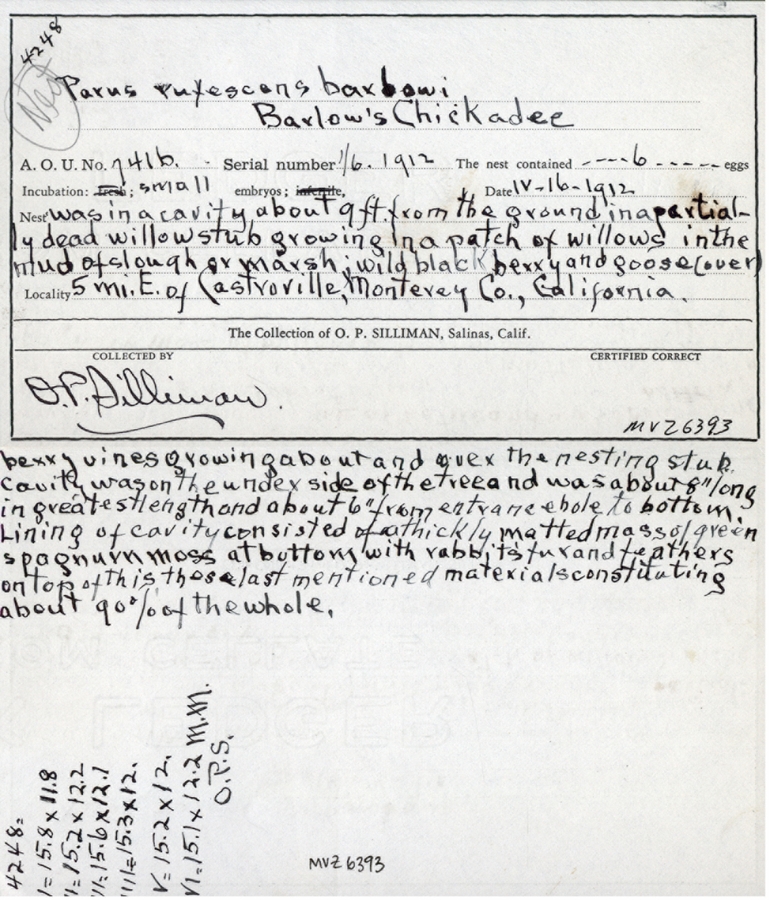 4248
Nest
Parus rufescens barlowi
Barlow's Chickadee
A. O. U. No. 741b. Serial number 1/6. 1912 The nest contained ----6----- eggs
Incubation: fresh; small embryos; infertile, Date IV-16-1912
Nest was in a cavity about 9 ft. from the ground in a partial-
ly dead willow stub growing in a patch of willows in the
mud of slough or marsh; wild black berry and goose (over)
Locality 5 mi. E. of Castroville, Monterey Co., California.
The Collection of O. P. SILLIMAN, Salinas, Calif.
COLLECTED BY CERTIFIED CORRECT
O.P. Silliman.
MVZ 6393
berry vines growing about and over the nesting stub.
Cavity was on the under side of the tree and was about 8" long
in greatest length and about 6" from entrance hole to bottom.
Lining of cavity consisted of a thickly matted mass of green
spagnum moss at bottom with rabbits fur and feathers
on top of this these last mentioned materials constituting
about 90% of the whole.
4248=
I=15.8 x 11.8
II=15.2 x 12.2
III=15.6 x 12.1
IIII=15.3 x 12.
V=15.2 x 12.
VI=15.1 x 12.2 M.M.
O.P.S.
MVZ 6393